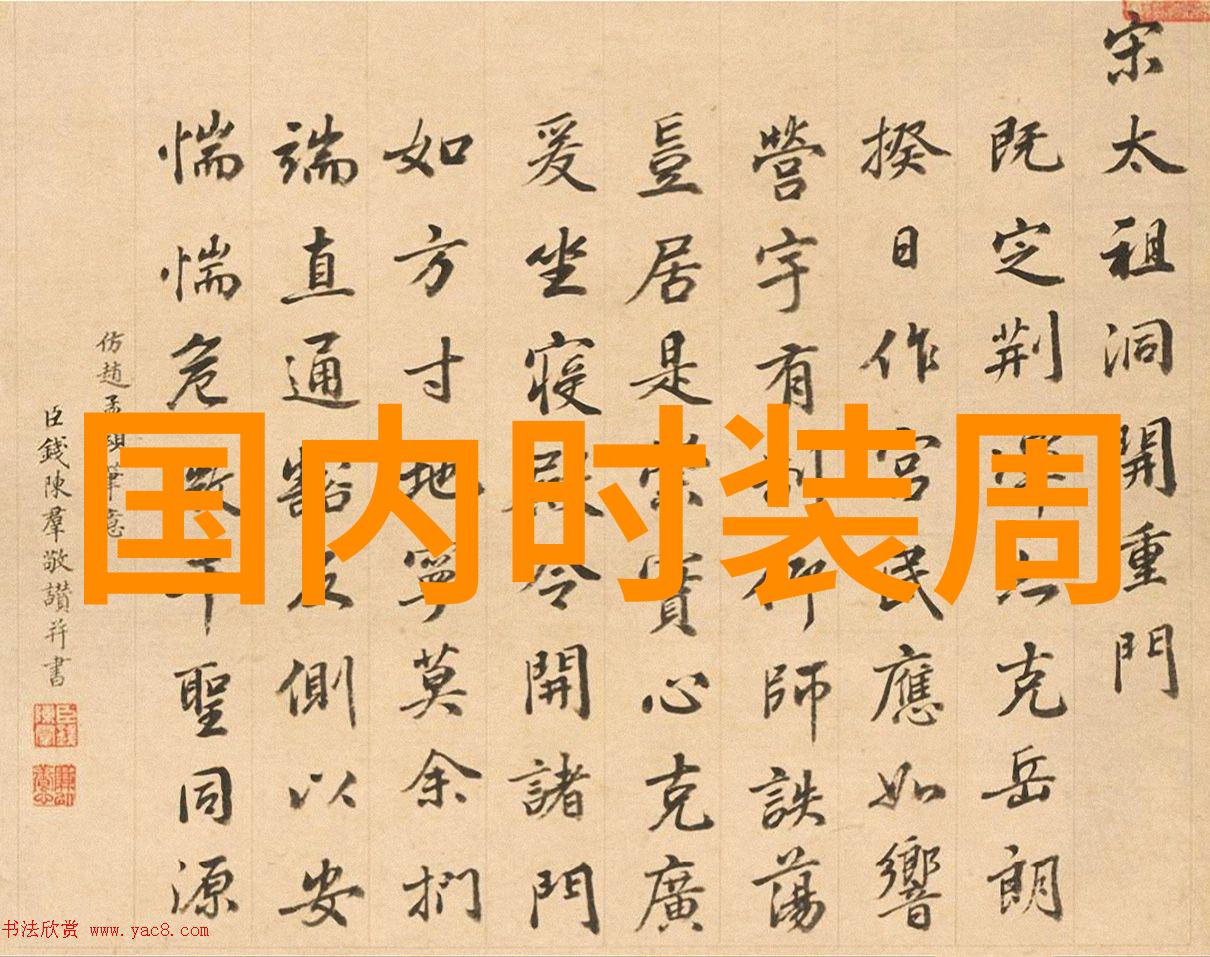 宋太祖洞開重門
既定荆克岳朗
揆日作宮民應如響
營宇有制仰師詄蕩
豈居是崇實心克廣
爰坐寢殿令開諸門
如方寸地寧莫余捫
端直通豁反側以安
惴惴危微千聖同源
仿趙孟頫筆意
臣錢陳羣敬讚并書
国内时装周
书法欣赏 www.yac8.com